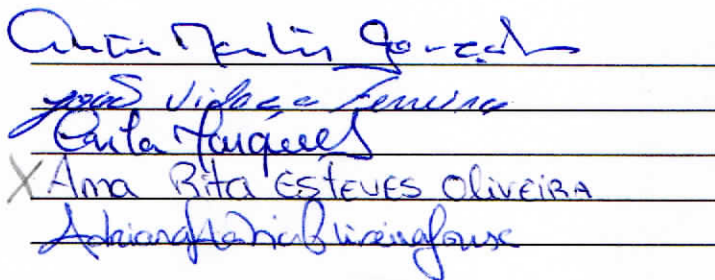 Martins Gonçalves
João Vilaça Ferreira
Carla Marques
X Ana Rita ESTEVES OLIVEIRA
Adriana Oliveira